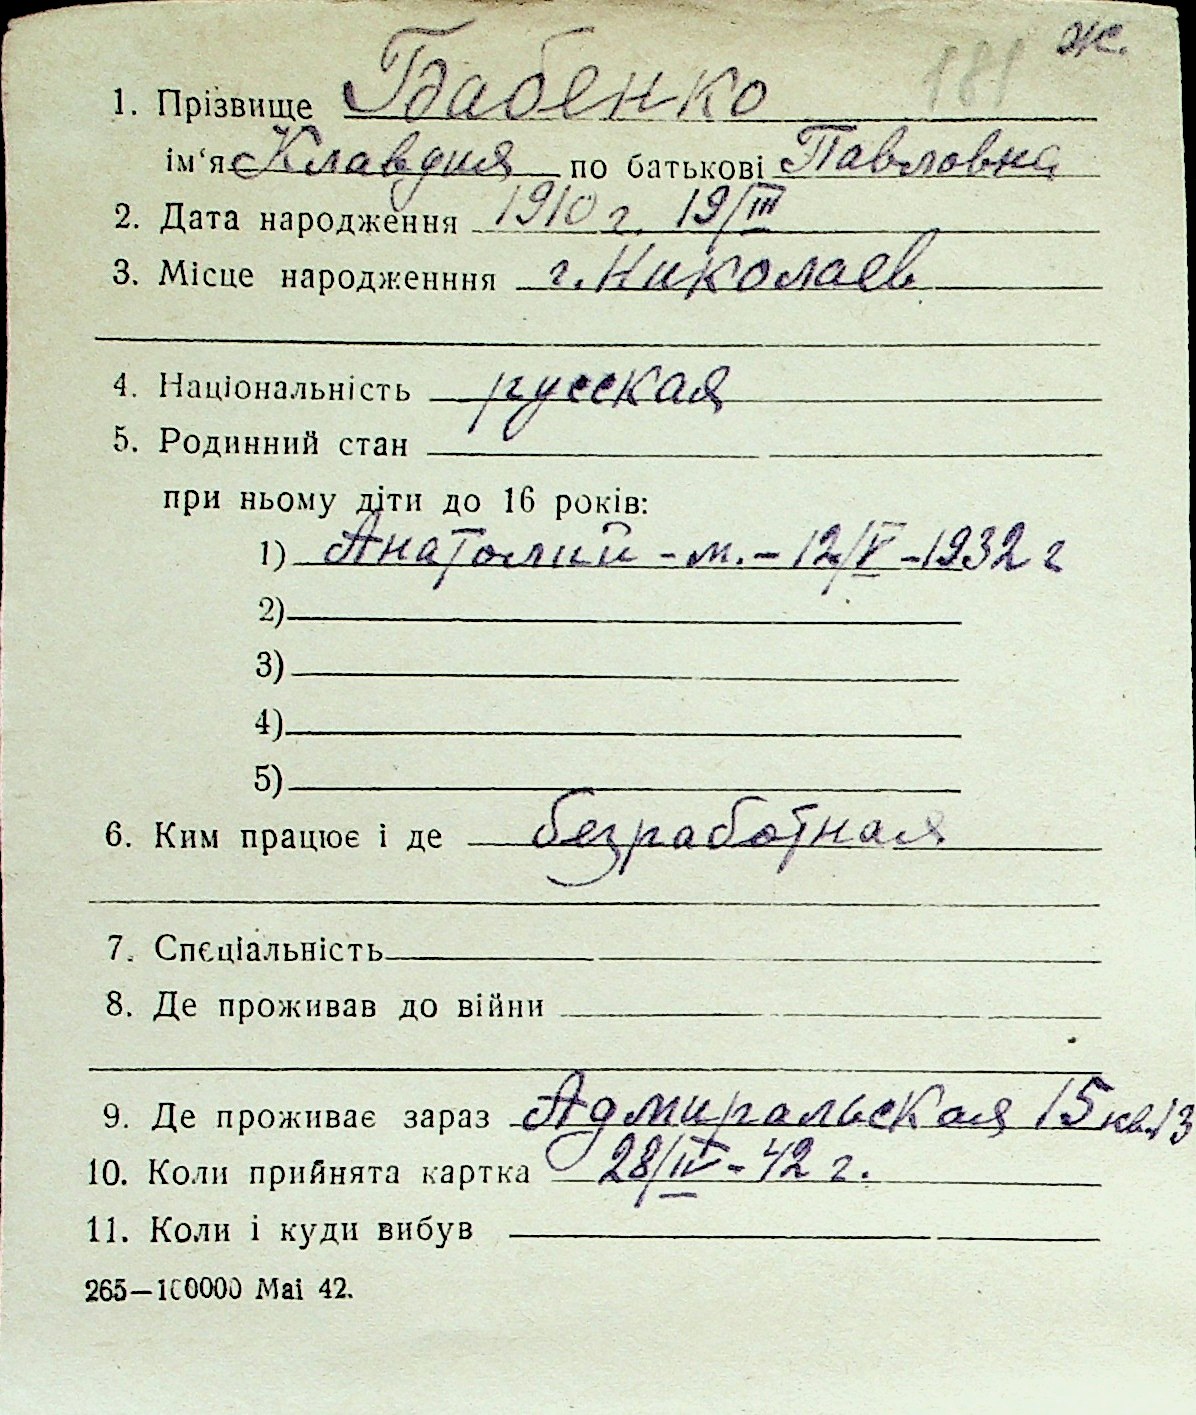 ж.
181
1. Прізвище Бабенко
ім‘я Клавдия по батькові Павловна
2. Дата народження 1910 г. 19/III
3. Місце народженння г. Николаев
4. Національність русская
5. Родинний стан
при ньому діти до 16 років:
1) Анатолий - м. - 12/V - 1932 г
2)
3)
4)
5)
6. Ким працює і де безработная
7. Спєціальність
8. Де проживав до війни
9. Де проживає зараз Адмиральская 15 кв.13
10. Коли прийнята картка 28/IV - 42 г.
11. Коли і куди вибув
265—100000 Маі 42.